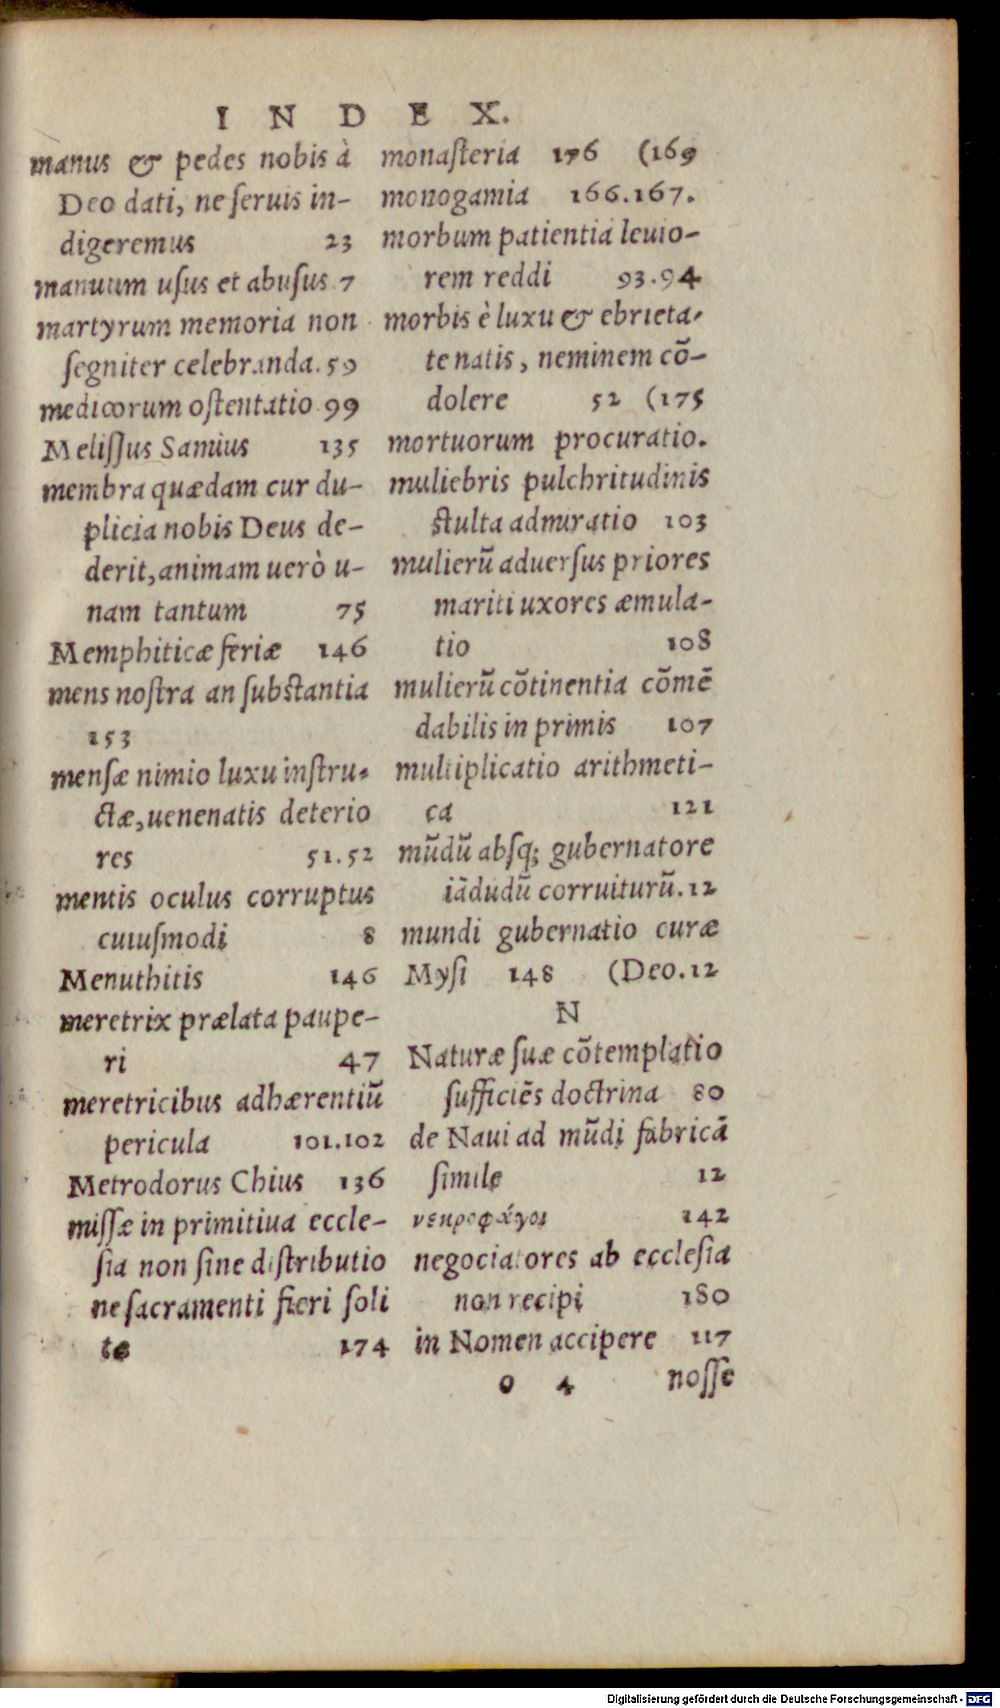 INDEX.
manus & pedes nobis à
Deo dati, ne ſeruis in-
digeremus 23
manuum uſus et abuſus 7
martyrum memoria non
ſegniter celebranda. 59
medicorum oſtentatio 99
Meliſſus Samius 135
membra quædam cur du-
plicia nobis Deus de-
derit, animam uerò u-
nam tantum 75
Memphiticæ feriæ 146
mens noſtra an ſubſtantia
153
menſæ nimio luxu inſtru-
ctæ, uenenatis deterio
res 51.52
mentis oculus corruptus
cuiuſmodi 8
Menuthitis 146
meretrix prælata paupe-
ri 47
meretricibus adhærentiũ
pericula 101.102
Metrodorus Chius 136
miſſæ in primitiua eccle-
ſia non ſine diſtributio
ne ſacramenti fieri ſoli
te 174
monaſteria 176 (169
monogamia 166.167.
morbum patientia leuio-
rem reddi 93.94
morbis è luxu & ebrieta-
te natis, neminem cõ-
dolere 52 (175
mortuorum procuratio.
muliebris pulchritudinis
ſtulta admiratio 103
mulierũ aduerſus priores
mariti uxores æmula-
tio 108
mulierũ cõtinentia cõmẽ
dabilis in primis 107
multiplicatio arithmeti-
ca 121
mũdũ abſq; gubernatore
iãdudũ corruiturũ. 12
mundi gubernatio curæ
Myſi 148 (Deo. 12
N
Naturæ ſuæ cõtemplatio
ſufficiẽs doctrina 80
de Naui ad mũdi fabricã
ſimile 12
νεκροφάγοι 142
negociatores ab eccleſia
non recipi 180
in Nomen accipere 117
o 4 noſſe
Digitalisierung gefördert durch die Deutsche Forschungsgemeinschaft - DFG